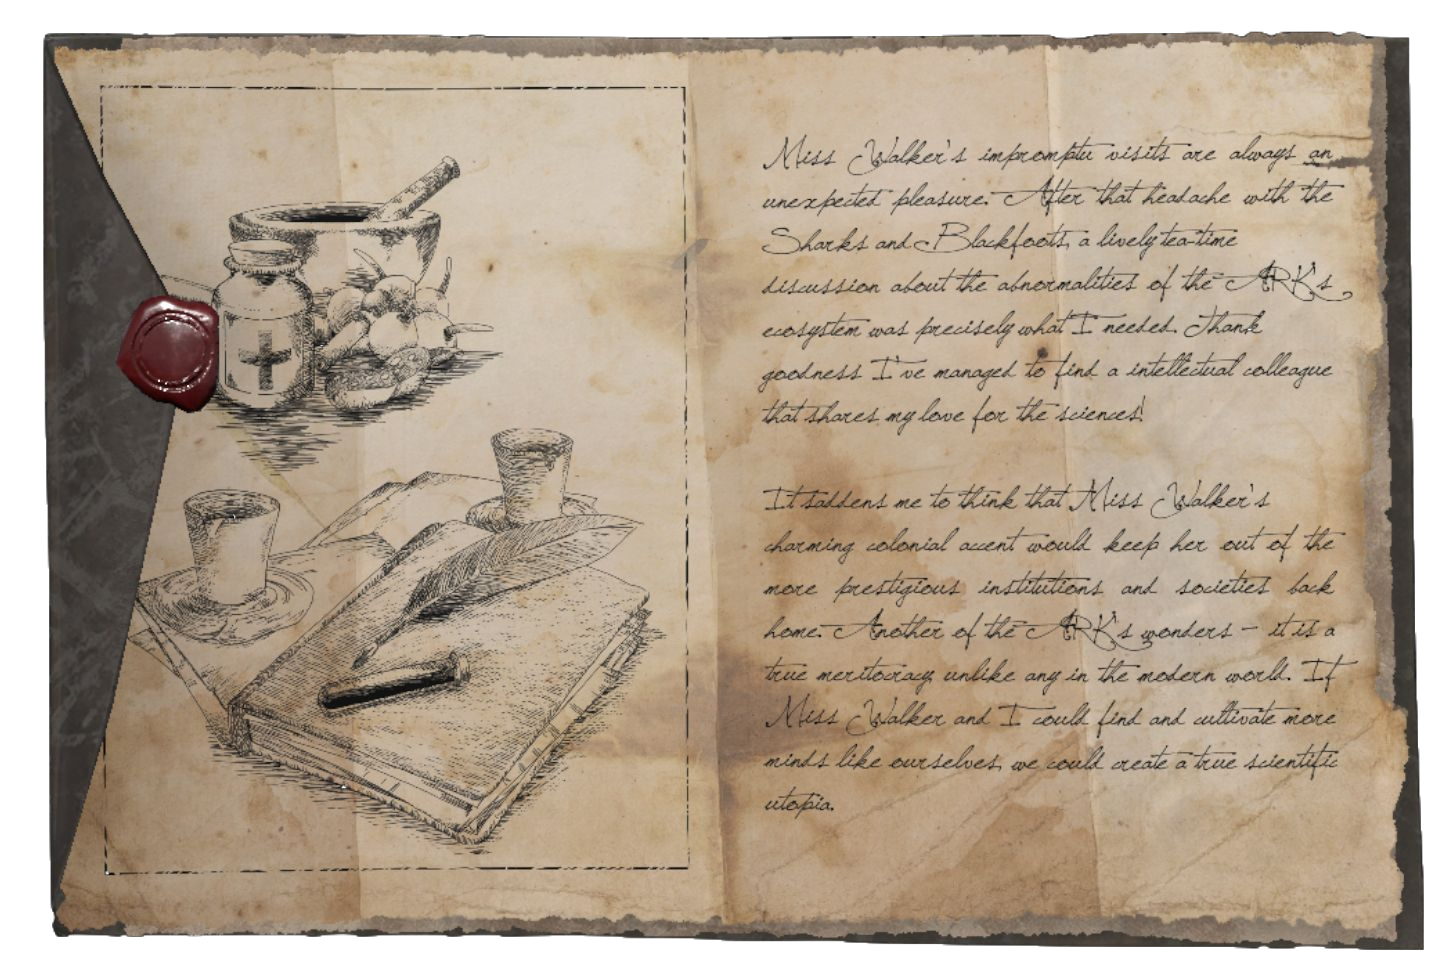 Miss Walker's impromptu visits are always an
unexpected pleasure. After that headache with the
Sharks and Blackfoots, a lively tea-time
discussion about the abnormalities of the ARK's
ecosystem was precisely what I needed. Thank
goodness I've managed to find a intellectual colleague
that shares my love for the sciences!
It saddens me to think that Miss Walker's
charming colonial accent would keep her out of the
more prestigious institutions and societies back
home. Another of the ARK's wonders - it is a
true meritocracy, unlike any in the modern world. If
Miss Walker and I could find and cultivate more
minds like ourselves, we could create a true scientific
utopia.